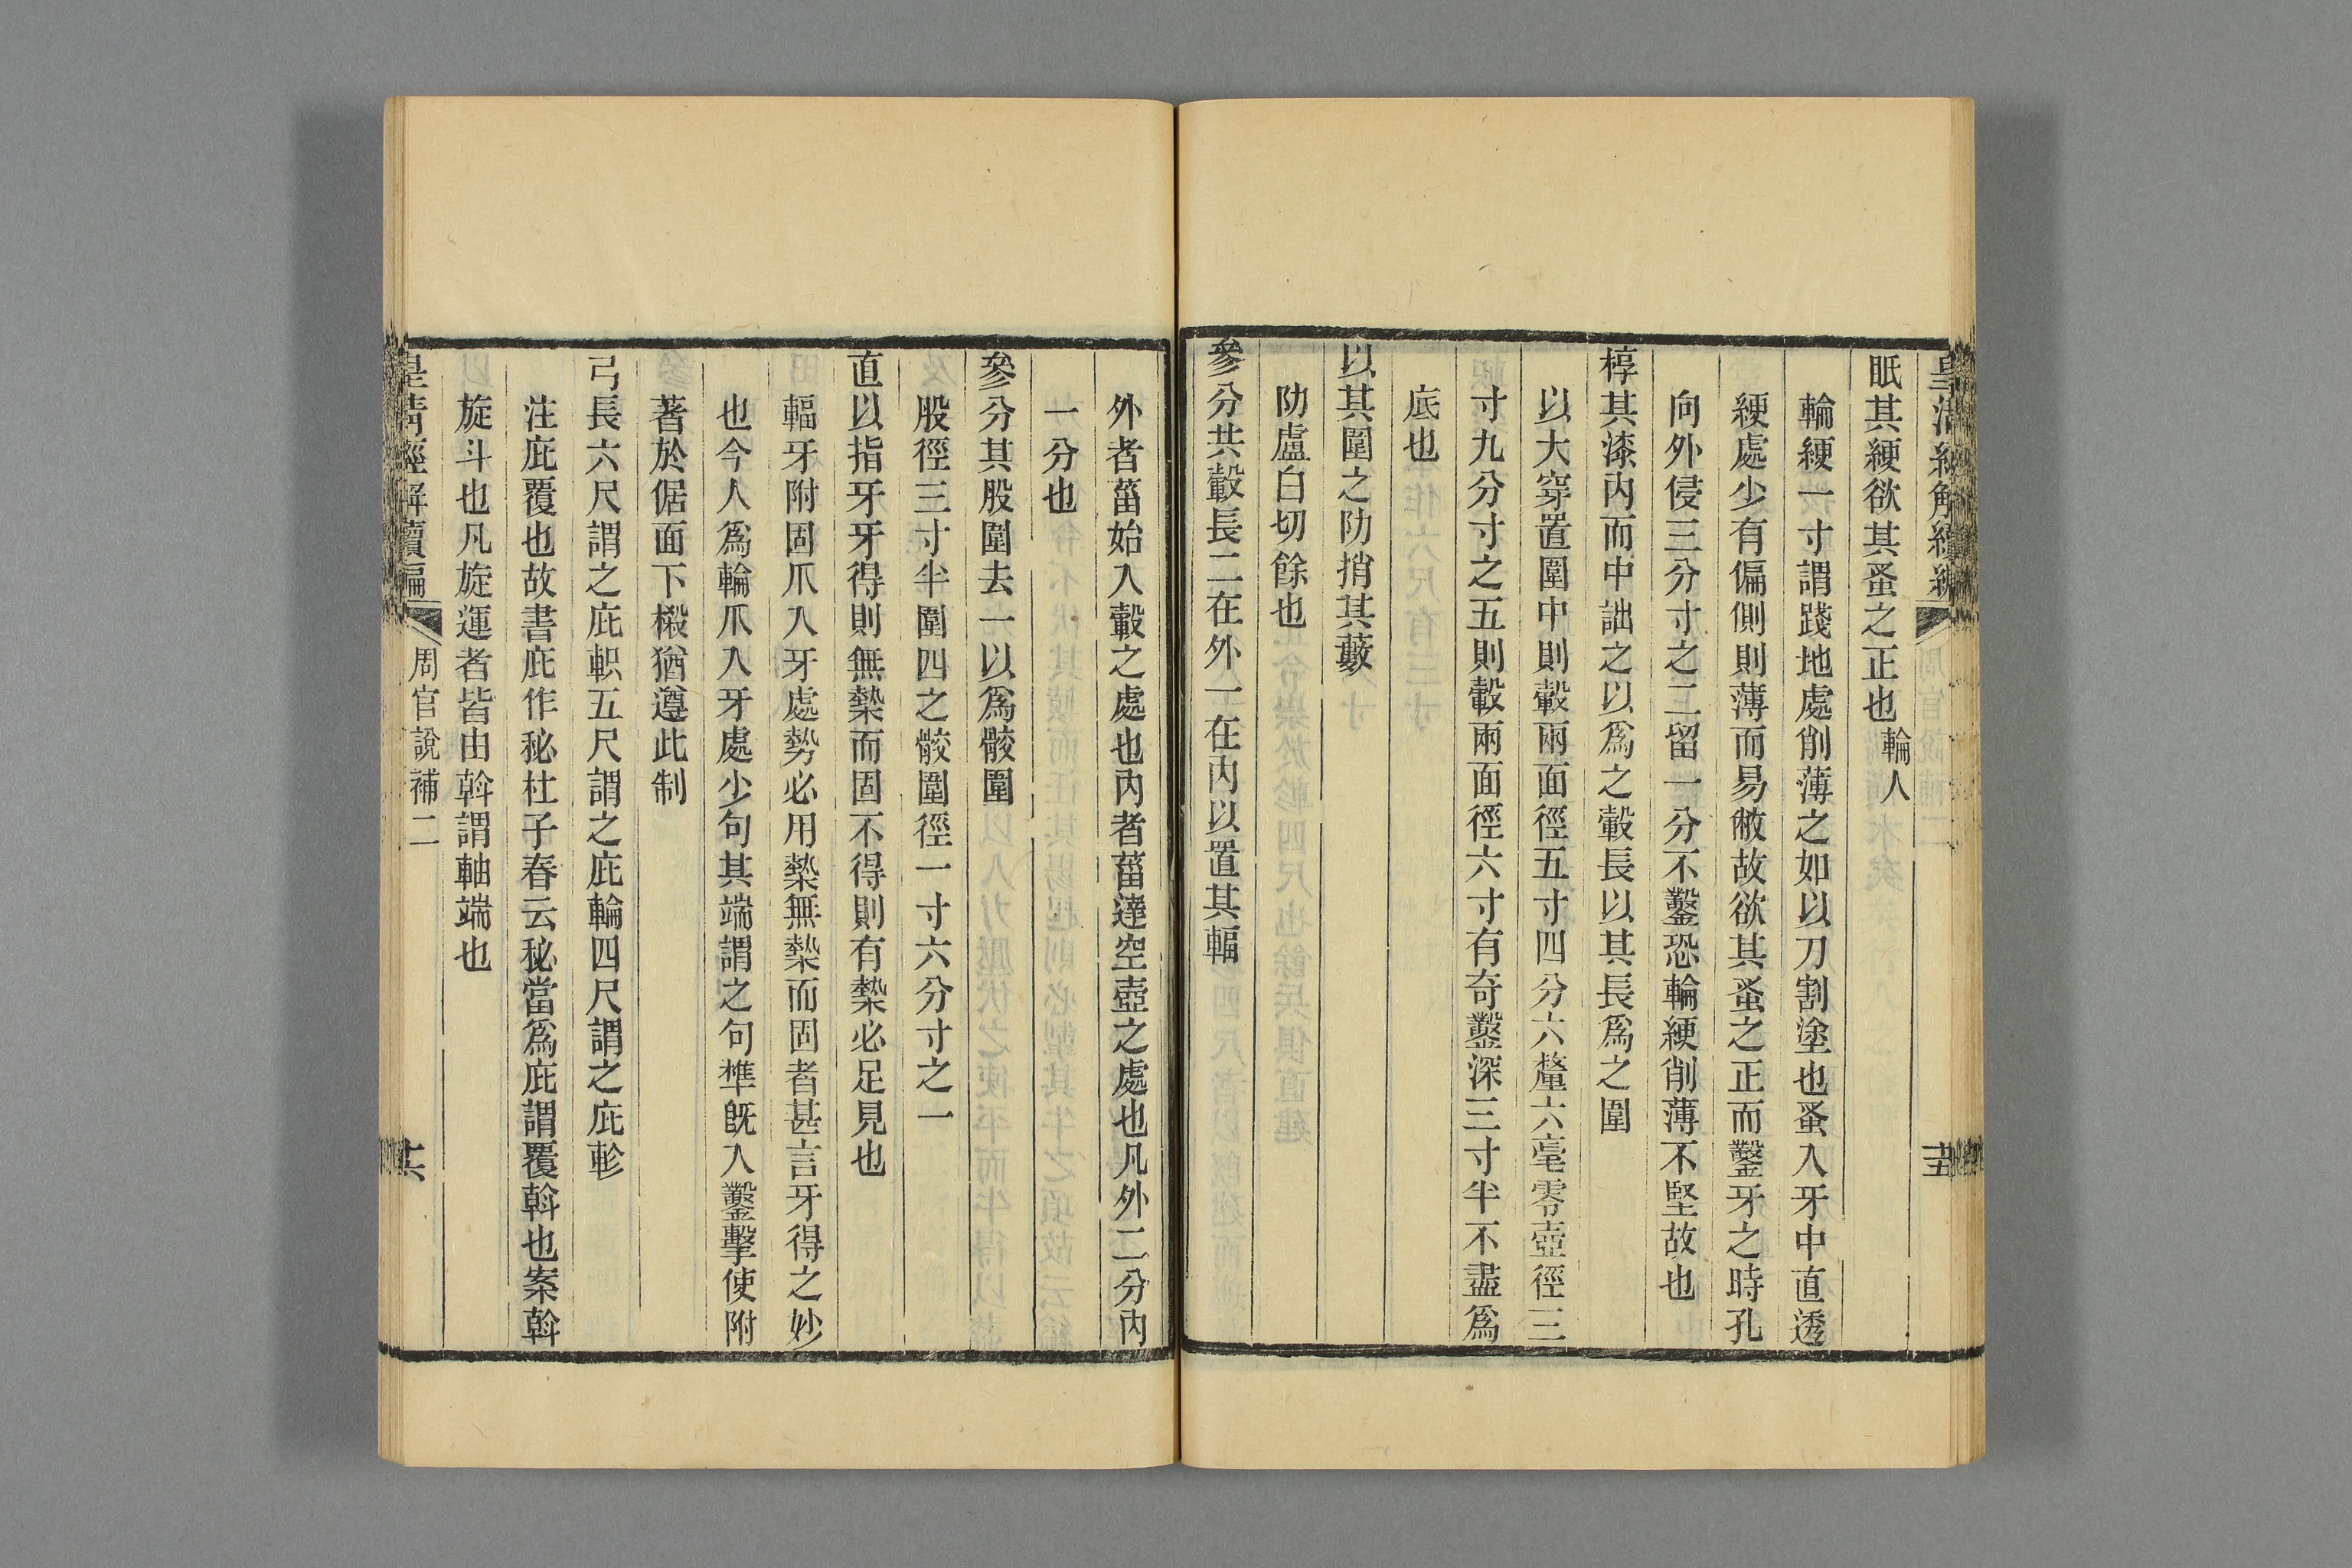 皇清經解續編
十五
眂其綆欲其蚤之正也輪人
輪綆一寸謂踐地處削薄之如以刀割塗也蚤入牙中直透
綆處少有偏側則薄而易敝故欲其蚤之正而鑿牙之時孔
向外侵三分寸之二留一分不鑿恐輪綆削薄不堅故也
椁其漆內而中詘之以爲之轂長以其長爲之圍
以大穿置圍中則轂兩面徑五寸四分六釐六毫零壺徑三
寸九分寸之五則轂兩面徑六寸有奇鑿深三寸半不盡爲
底也
以其圍之阞捎其藪
阞盧白切餘也
參分其轂長二在外一在內以置其輻
外者菑始入轂之處也內者菑達空壺之處也凡外二分內
一分也
參分其股圍去一以爲骹圍
股徑三寸半圍四之骹圍徑一寸六分寸之一
直以指牙牙得則無槷而固不得則有槷必足見也
輻牙附固爪入牙處勢必用槷無槷而固者甚言牙得之妙
也今人爲輪爪入牙處少句其端謂之句榫旣入鑿擊使附
著於倨面下樧猶遵此制
弓長六尺謂之庇軹五尺謂之庇輪四尺謂之庇軫
注庇覆也故書庇作秘杜子春云秘當爲庇謂覆斡也案斡
旋斗也凡旋運者皆由斡謂軸端也
皇清經解續編
周官說補二
十六